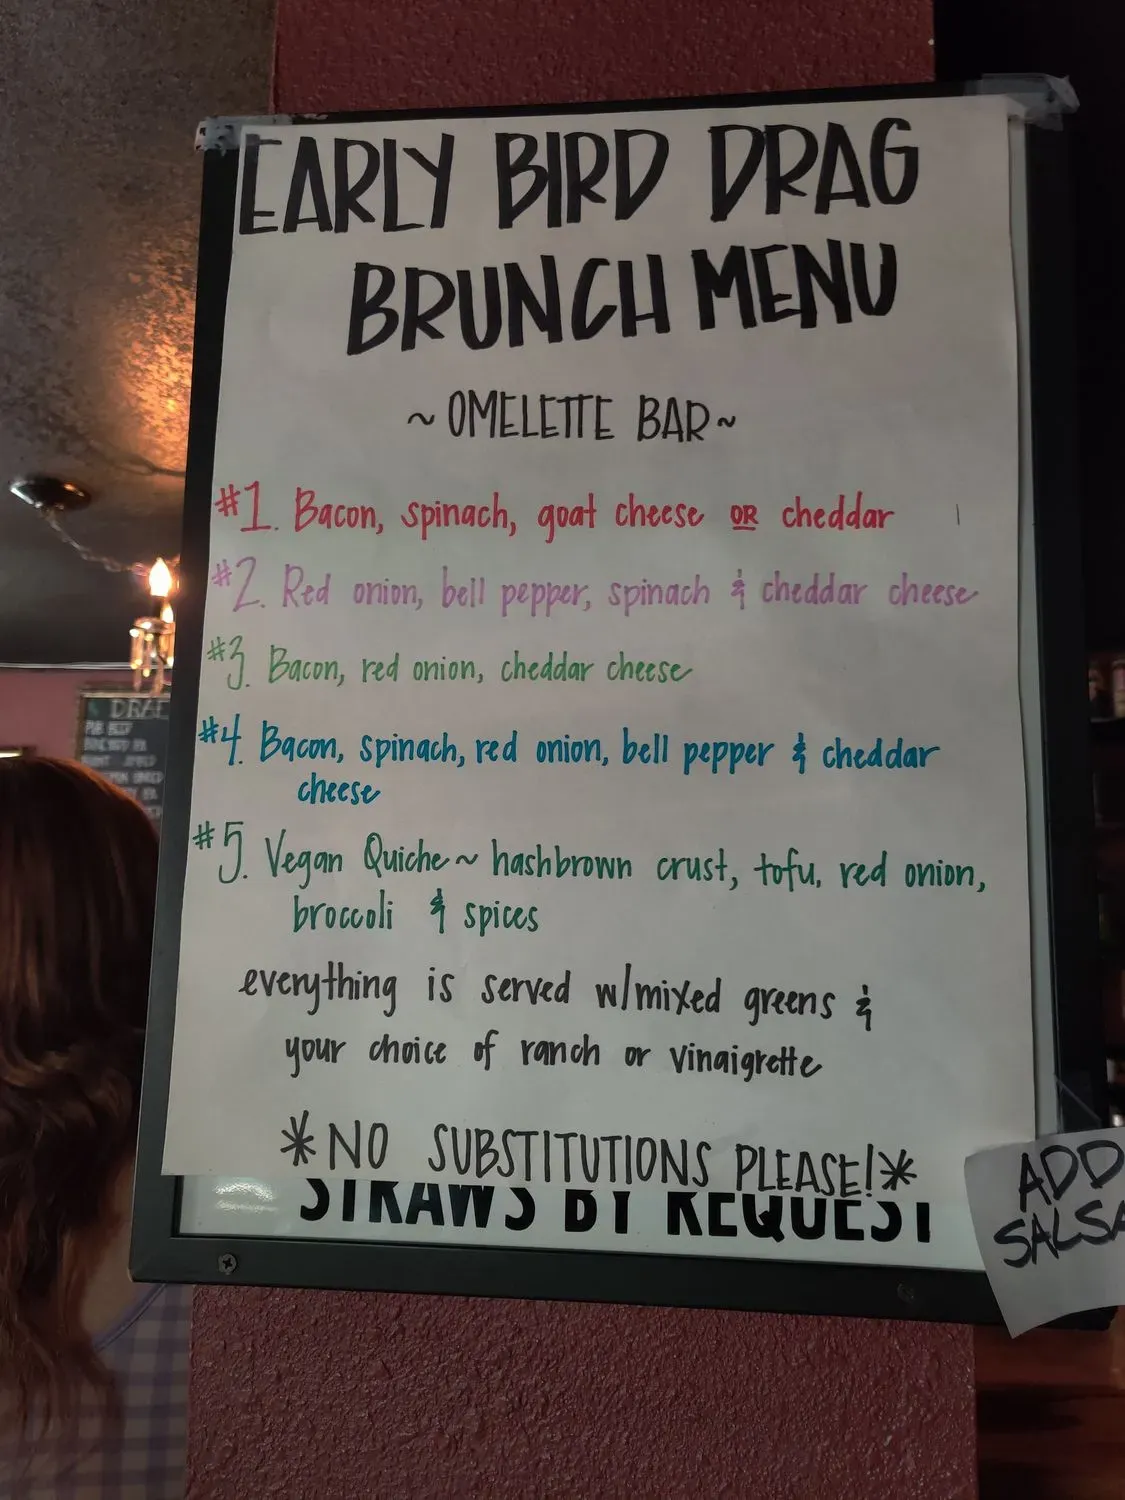 EARLY BIRD DRAG
BRUNCH MENU
~ OMELETTE BAR ~
#1. Bacon, spinach, goat cheese OR cheddar
#2. Red onion, bell pepper, spinach & cheddar cheese
#3. Bacon, red onion, cheddar cheese
#4. Bacon, spinach, red onion, bell pepper & cheddar
cheese
#5. Vegan Quiche ~ hashbrown crust, tofu, red onion,
broccoli & spices
everything is served w/mixed greens &
your choice of ranch or vinaigrette
*NO SUBSTITUTIONS PLEASE!*
STRAWS BY REQUEST
ADD
SALSA